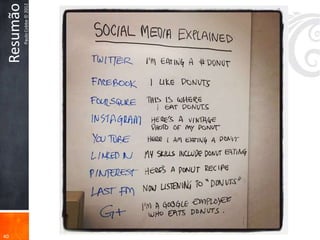 Resumão
SOCIAL MEDIA EXPLAINED
TWITTER I'M EATING A #DONUT
FACEBOOK I LIKE DONUTS
FOURSQUARE THIS IS WHERE
I EAT DONUTS
INSTAGRAM HERE'S A VINTAGE
PHOTO OF MY DONUT
YOU TUBE HERE I AM EATING A DONUT
LINKED IN MY SKILLS INCLUDE DONUT EATING
PINTEREST HERE'S A DONUT RECIPE
LAST FM NOW LISTENING TO "DONUTS"
G+ I'M A GOOGLE EMPLOYEE
WHO EATS DONUTS.